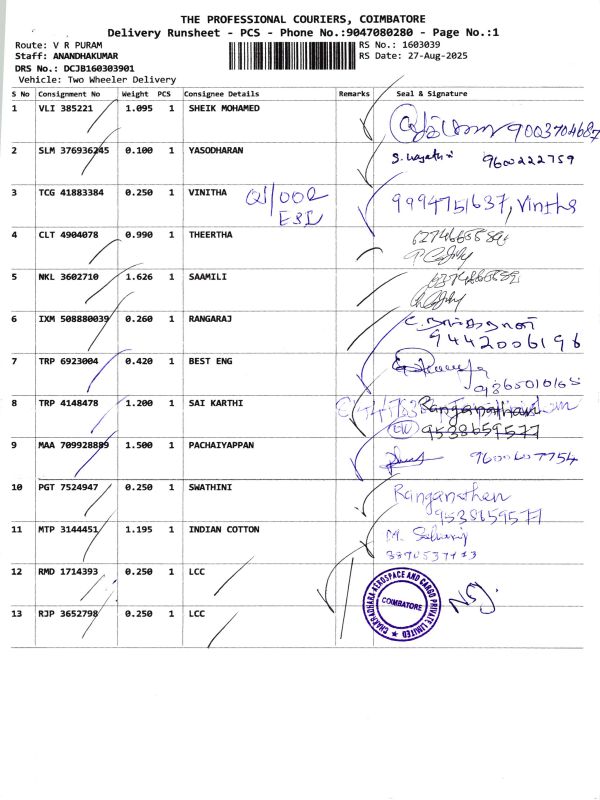 THE PROFESSIONAL COURIERS, COIMBATORE
Delivery Runsheet - PCS - Phone No.:9047080280 - Page No.:1
Route: V R PURAM RS No.: 1603039
Staff: ANANDHAKUMAR RS Date: 27-Aug-2025
DRS No.: DCJB160303901
Vehicle: Two Wheeler Delivery
S No Consignment No Weight PCS Consignee Details Remarks Seal & Signature
1 VLI 385221 1.095 1 SHEIK MOHAMED 9003704687
2 SLM 376936245 0.100 1 YASODHARAN 9600222759
3 TCG 41883384 0.250 1 VINITHA 9994751637, Vinitha
ESI
4 CLT 4904078 0.990 1 THEERTHA
5 NKL 3602710 1.626 1 SAAMILI
6 IXM 508880039 0.260 1 RANGARAJ
9442006196
7 TRP 6923004 0.420 1 BEST ENG
9865010165
8 TRP 4148478 1.200 1 SAI KARTHI Ranganathan
9538659577
9 MAA 709928889 1.500 1 PACHAIYAPPAN 9600607754
10 PGT 7524947 0.250 1 SWATHINI Ranganathan
9538659577
11 MTP 3144451 1.195 1 INDIAN COTTON
12 RMD 1714393 0.250 1 LCC
13 RJP 3652798 0.250 1 LCC
CHAKRADHARA AEROSPACE AND CARGO PRIVATE LIMITED
COIMBATORE